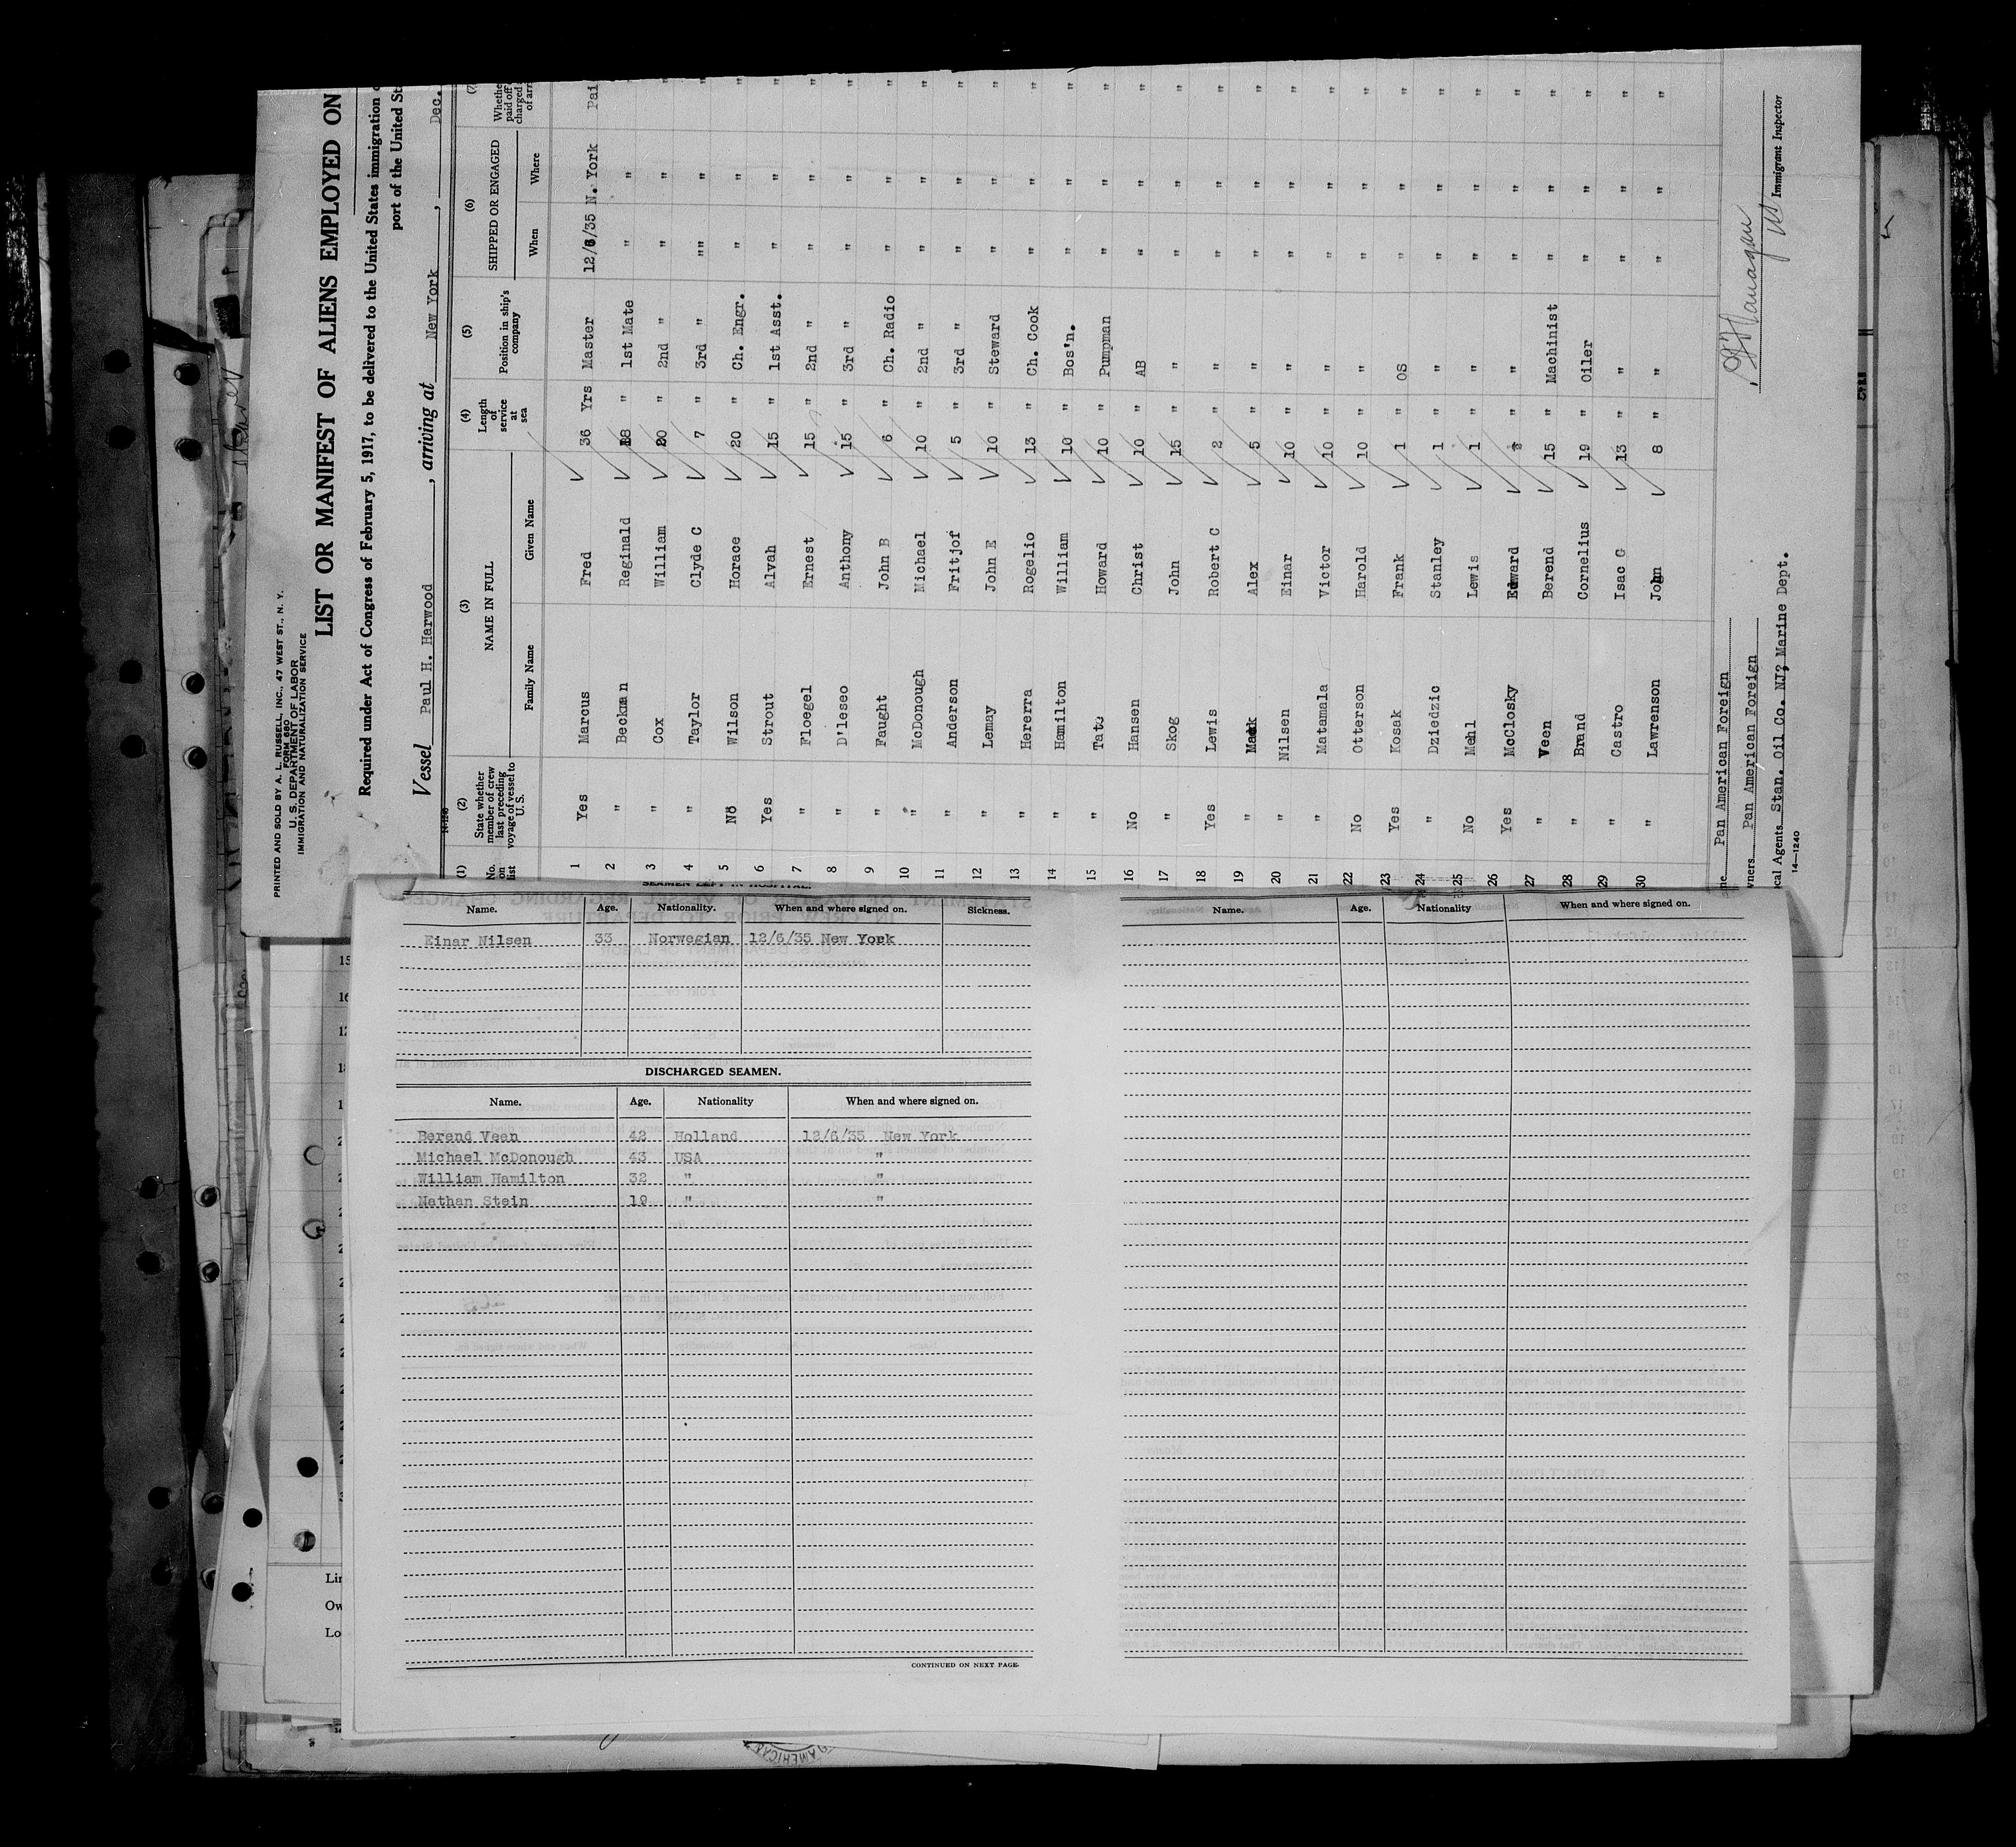 PRINTED AND SOLD BY A. L. RUSSELL, INC., 47 WEST ST., N. Y.
FORM 680
U. S. DEPARTMENT OF LABOR
IMMIGRATION AND NATURALIZATION SERVICE
LIST OR MANIFEST OF ALIENS EMPLOYED ON
Required under Act of Congress of February 5, 1917, to be delivered to the United States immigration
port of the United
Vessel Paul H. Harwood, arriving at New York, Dec.
(1) (2) (3) (4) (5) (6) (7)
No. on list State whether member of crew last preceding voyage of vessel to U. S. NAME IN FULL Length of service at sea Position in ship's company SHIPPED OR ENGAGED
Family Name Given Name When Where
1 Yes Marcus Fred 36 Yrs Master 12/6/35 N. York
2 " Beekman Reginald 18 " 1st Mate " " "
3 " Cox William 20 " 2nd " " " "
4 " Taylor Clyde C 7 " 3rd " "" " "
5 No Wilson Horace 20 " Ch. Engr. " " "
6 Yes Strout Alvah 15 " 1st Asst. " " "
7 " Floegel Ernest 15 " 2nd " " " "
8 " D'leseo Anthony 15 " 3rd " " " "
9 " Faught John B 6 " Ch. Radio " " "
10 " McDonough Michael 10 " 2nd " " " "
11 " Anderson Fritjof 5 " 3rd " " " "
12 " Lemay John E 10 " Steward " " "
13 " Hererra Rogelio 13 " Ch. Cook " " "
14 " Hamilton William 10 " Bos'n. " " "
15 " Tate Howard 10 " Pumpman " " "
16 No Hansen Christ 10 " AB " " "
17 " Skog John 15 " " " " "
18 Yes Lewis Robert C 2 " " " " "
19 " Alex 5 " " " " "
20 " Nilsen Einar 10 " " " " "
21 " Matamala Victor 10 " " " " "
22 No Otterson Harold 10 " " " " "
23 Yes Kosak Frank 1 " OS " " "
24 " Dziedzic Stanley 1 " " " " "
25 No Mehl Lewis 1 " " " " "
26 Yes McClosky Edward " " " "
27 " Veen Berend 15 " Machinist " " "
28 " Brand Cornelius 19 " Oiler " " "
29 " Castro Isac G 13 " " " " "
30 " Lawrenson John 8 " " " " "
Pan American Foreign
Pan American Foreign
Stan. Oil Co. NJ, Marine Dept.
14—1240
Immigrant Inspector
SEAMEN LEFT IN HOSPITAL.
Name. Age. Nationality. When and where signed on. Sickness.
Einar Nilsen 33 Norwegian 12/6/35 New York
DISCHARGED SEAMEN.
Name. Age. Nationality When and where signed on.
Berend Veen 42 Holland 12/6/35 New York
Michael McDonough 43 USA "
William Hamilton 32 " "
Nathan Stein 19 " "
CONTINUED ON NEXT PAGE.
Name. Age. Nationality When and where signed on.